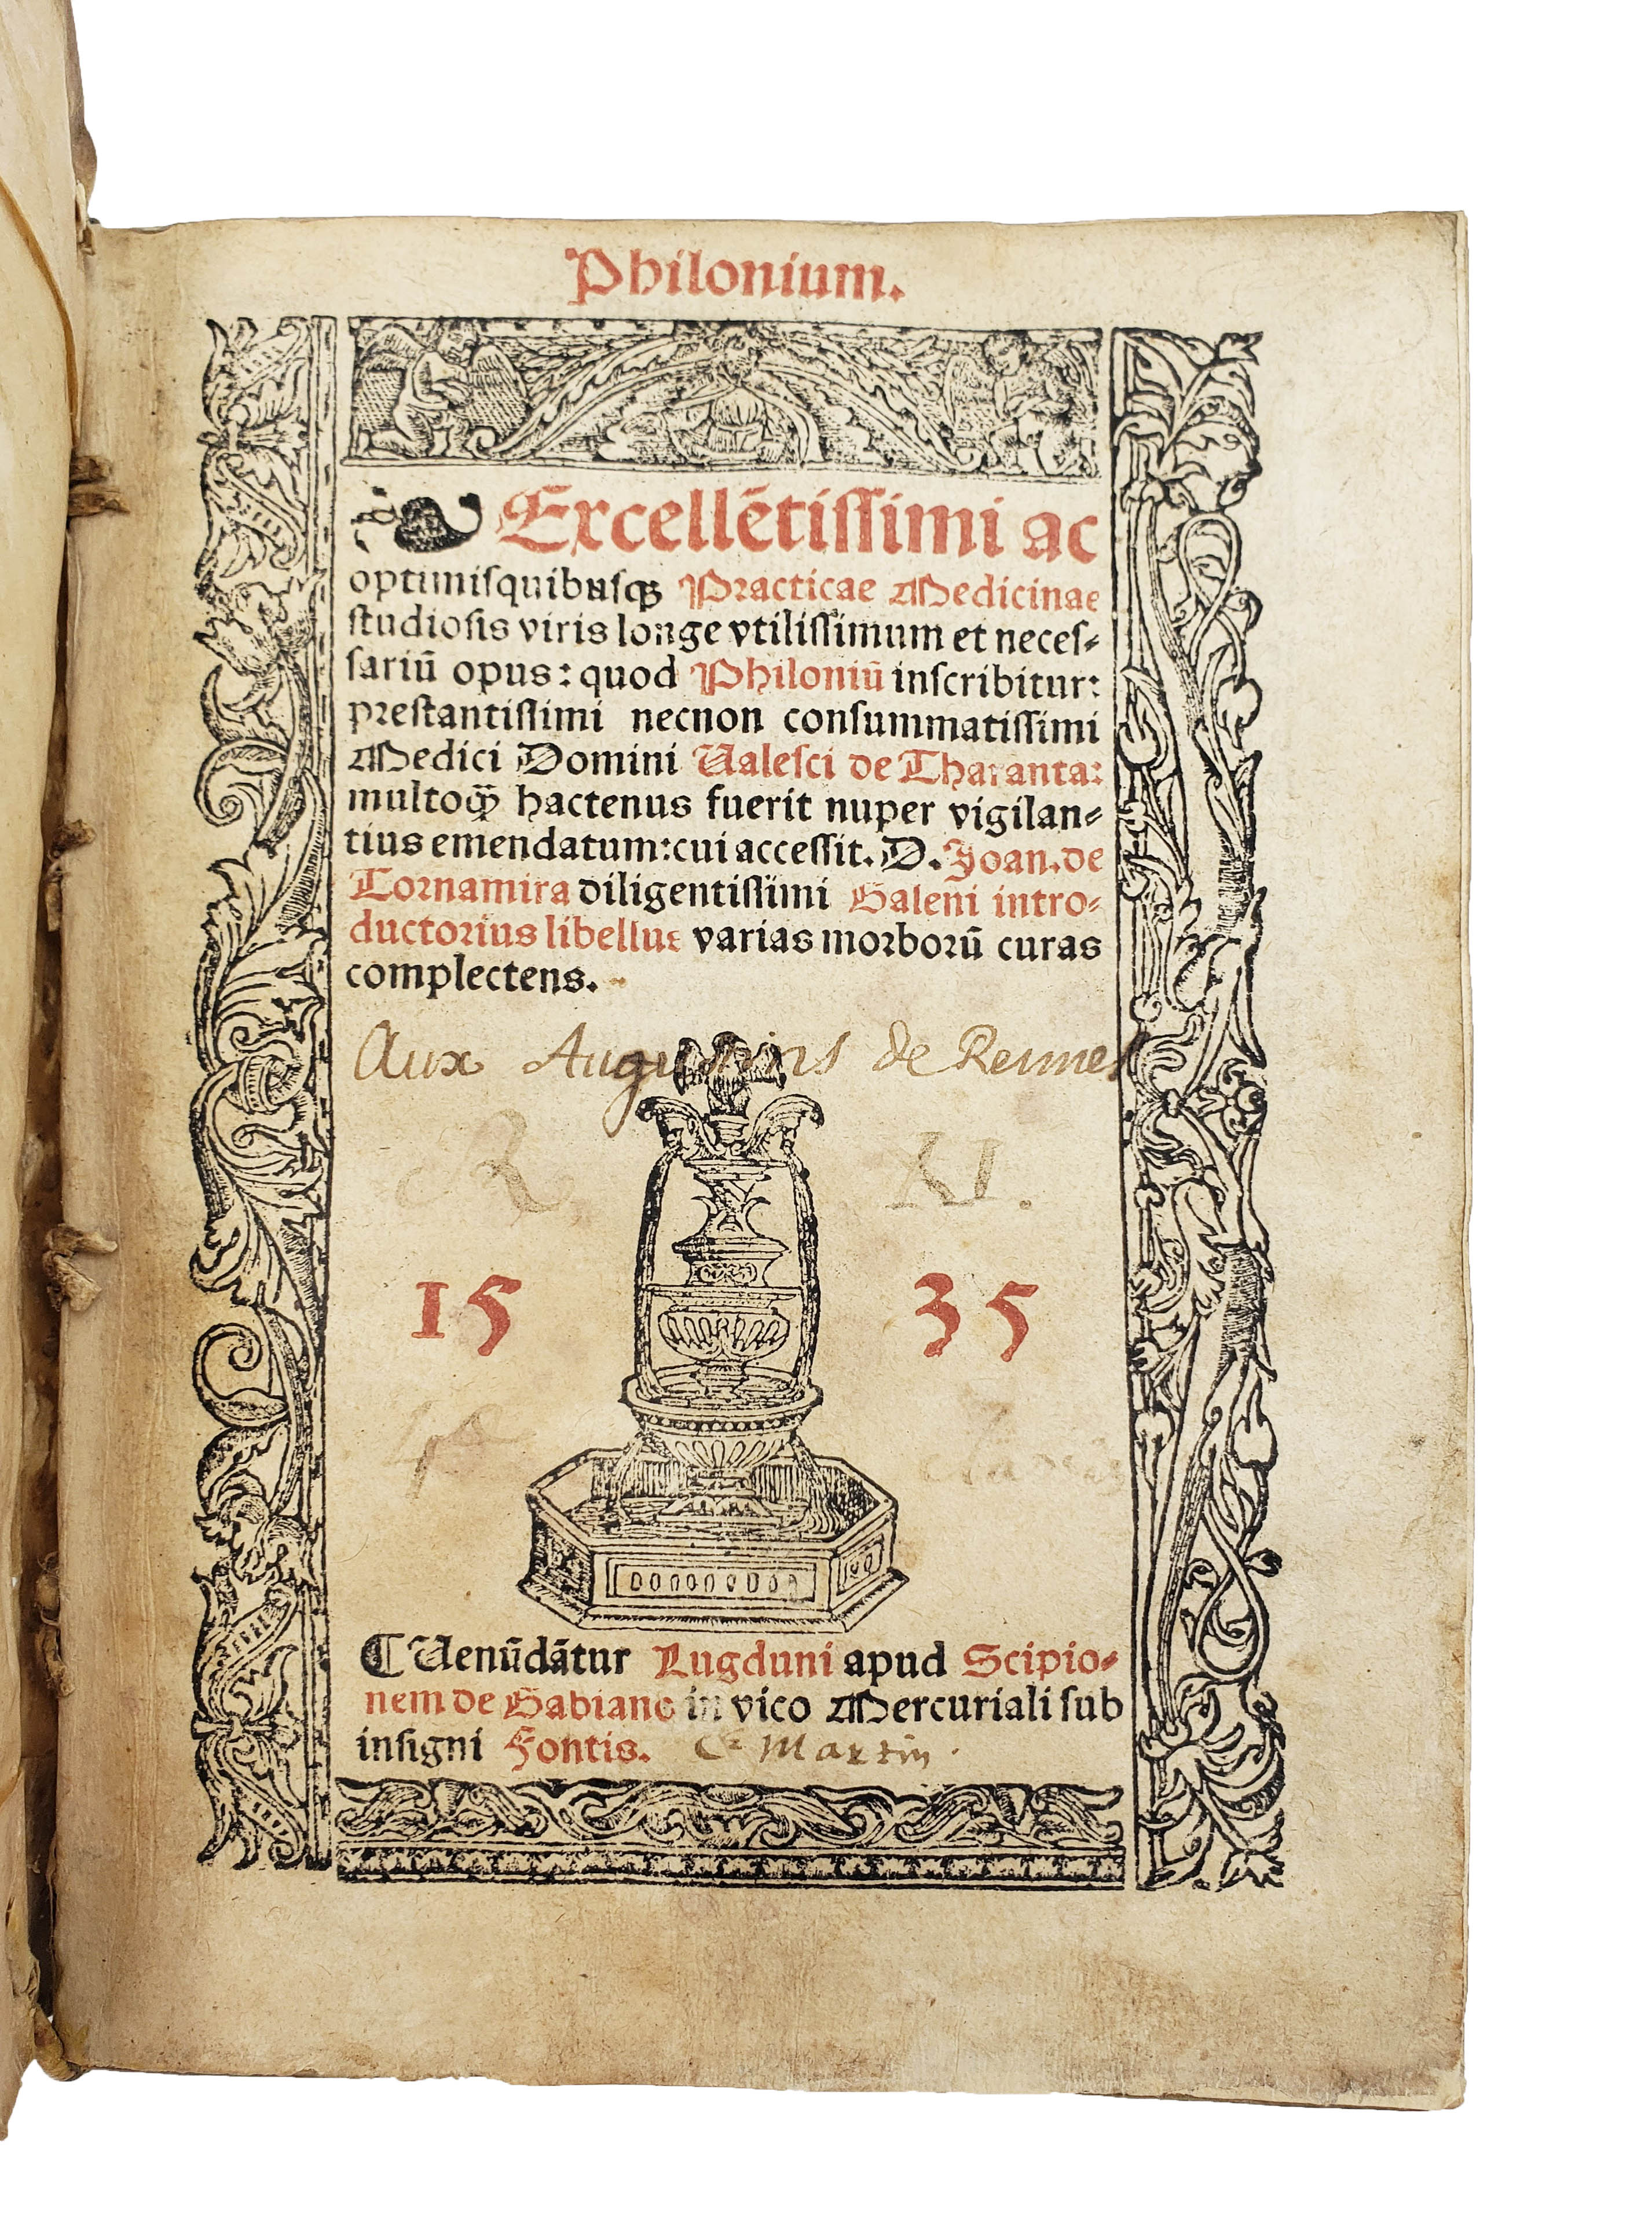 Philonium.
Excellētissimi ac
optimisquibusqȝ Practicae Medicinae
studiosis viris longe vtilissimum et neces-
sariū opus: quod Philoniū inscribitur:
prestantissimi necnon consummatissimi
Medici Domini Ualesci de Tharanta:
multoqȝ̈ hactenus fuerit nuper vigilan-
tius emendatum: cui accessit. D. Joan. de
Tornamira diligentissimi Galeni intro-
ductorius libellus varias morborū curas
complectens.
Aux Augustins de Rennes
R XI.
15 35
¶ Uenūdātur Lugduni apud Scipio-
nem de Gabiano in vico Mercuriali sub
insigni Fontis. Martin.